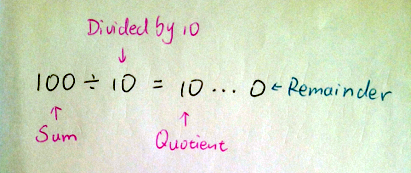 Divided by 10
100 ÷ 10 = 10 ... 0 ← Remainder
Sum
Quotient